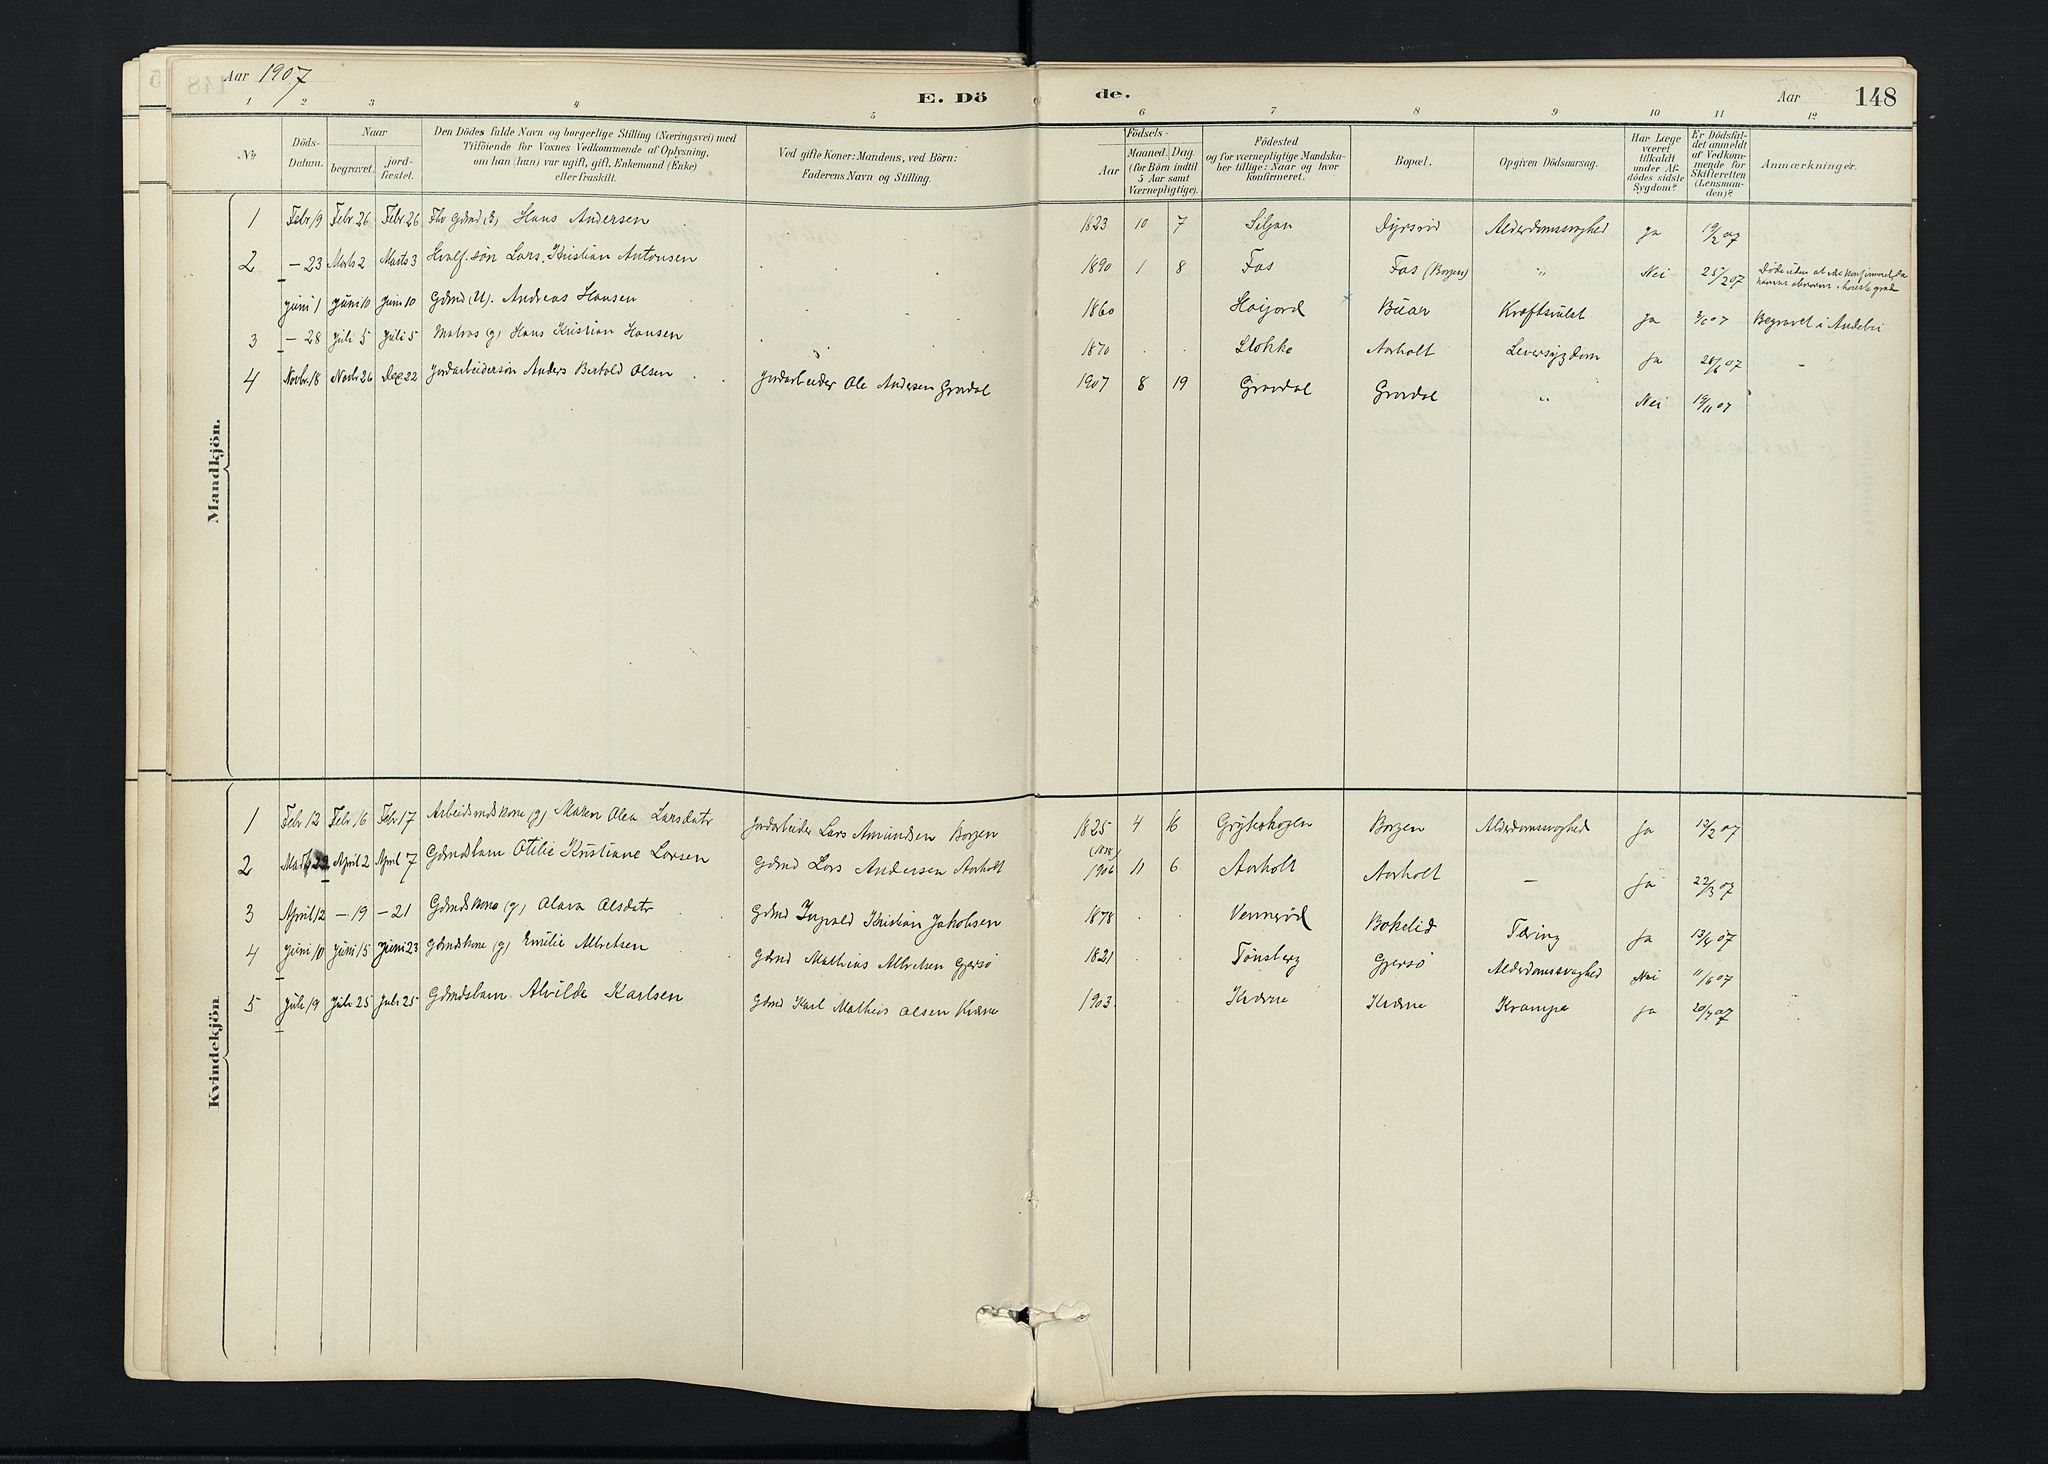 Aar 1907
E. Dö
de.
Aar
148
1 2 3 4 5 6 7 8 9 10 11 12
No.
Döds-
Datum.
Naar
begravet.
jord-
fæstet.
Den Dödes fulde Navn og borgerlige Stilling (Næringsvei) med
Tilföiende for Voxnes Vedkommende af Oplysning,
om han (hun) var ugift, gift, Enkemand (Enke)
eller fraskilt.
Ved gifte Koner: Mandens, ved Börn:
Faderens Navn og Stilling.
Födsels-
Aar
Maaned. Dag.
(for Börn indtil
5 Aar samt
Værnepligtige).
Födested
og for værnepligtige Mandska-
ber tillige: Naar og hvor
konfirmeret.
Bopæl.
Opgiven Dödsaarsag.
Har Læge
været
tilkaldt
under Af-
dödes sidste
Sygdom?
Er Dödsfal-
det anmeldt
af Vedkom-
mende for
Skifteretten
(Lensman-
den)?
Anmærkninger.
Mandkjön.
1 Febr. 19 Febr 26 Febr. 26 Fhv Gdmd (E) Hans Andersen 1823 10 7 Siljan Dyrsrød Alderdomssvaghed ja 19/2 07
2 - 23 Marts 2 Marts 3 søn Lars Kristian Antonsen 1890 1 8 Fos Fos (Borgen) " Nei 25/2 07 Døde uden at
Juni 1 Juni 10 Juni 10 Gdmd (U). Andreas Hansen 1860 Høijord Buer Kræftsvulst ja 3/6 07 Begravet i Andebu
3 - 28 Juli 5 Juli 5 Matros (g) Hans Kristian Hansen 1870 Stokke Aarholt Leversygdom ja 28/6 07 -
4 Novbr. 18 Novbr 26 Dec 22 Jordarbeidersøn Anders Bertold Olsen Jordarbeider Ole Andersen Gravdal 1907 8 19 Gravdal Gravdal " Nei 19/11 07
Kvindekjön.
1 Febr 12 Febr 16 Febr 17 Arbeidsmdskone (g) Maren Olea Larsdatr Jordarbeider Lars Amundsen Borgen 1825 4 16 Gryteskogen Borgen Alderdomssvaghed ja 13/2 07
2 Marts 22 April 2 April 7 Gdmdsbarn Otilie Kristiane Larsen Gdmd Lars Andersen Aarholt 1906 11 6 Aarholt Aarholt - ja 22/3 07
3 April 12 - 19 - 21 Gdmdskone (g) Olava Olsdatr Gdmd Ingvald Kristian Jakobsen 1878 Vennerød Bakelid Tæring ja 13/4 07
4 Juni 10 Juni 15 Juni 23 Gdmdskone (g) Emilie Albretsen Gdmd Mathias Albretsen Gjersø 1821 Tønsberg Gjersø Alderdomssvaghed Nei 11/6 07
5 Juli 19 Juli 25 Juli 25 Gdmdsbarn Alvilde Karlsen Gdmd Karl Mathias Olsen Kværne 1903 Kværne Kværne Krampe ja 20/7 07